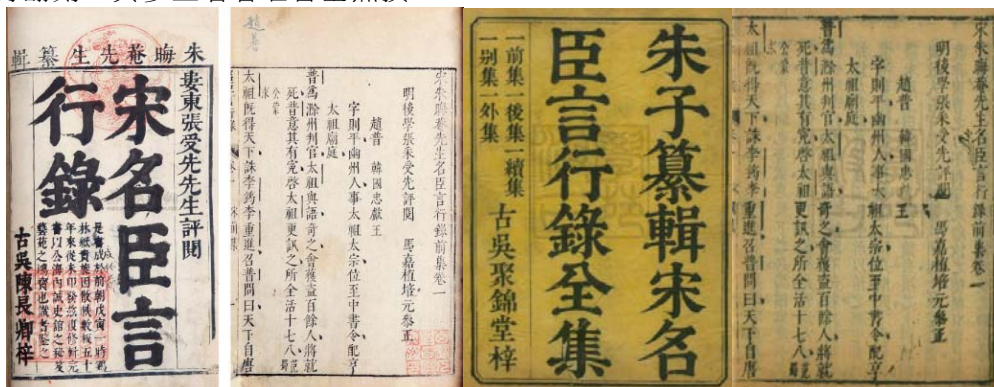 朱晦菴先生纂輯
婁東張受先先生評閱
宋名臣言
行錄
是書成於前朝戊寅一時
年來從未印發茲復修輯元
書以公海內誠史
藝苑之鴻寶也識者鑒之
古吳陳長卿梓
趙普
宋朱晦菴先生名臣言行錄前集卷一
明後學張采受先評閱 馬嘉植培元參正
趙普 韓國忠獻王
字則平幽州人事太祖太宗位至中書令配享
太祖廟庭
普為滁州判官太祖與語奇之會獲盜百餘人將就
死普意其有冤啓太祖更訊之所全活十七八范蜀
公蒙求
太祖既得天下誅李筠李重進召普問曰天下自唐
朱子纂輯宋名
臣言行錄全集
一前集一後集一續集
一別集一外集
古吳聚錦堂梓
宋朱晦菴先生名臣言行錄前集卷一
明後學張采受先評閱 馬嘉植培元參正
趙普 韓國忠獻王
字則平幽州人事太祖太宗位至中書令配享
太祖廟庭
普為滁州判官太祖與語奇之會獲盜百餘人將就
死普意其有冤啓太祖更訊之所全活十七八范蜀
公蒙求
太祖既得天下誅李筠李重進召普問曰天下自唐